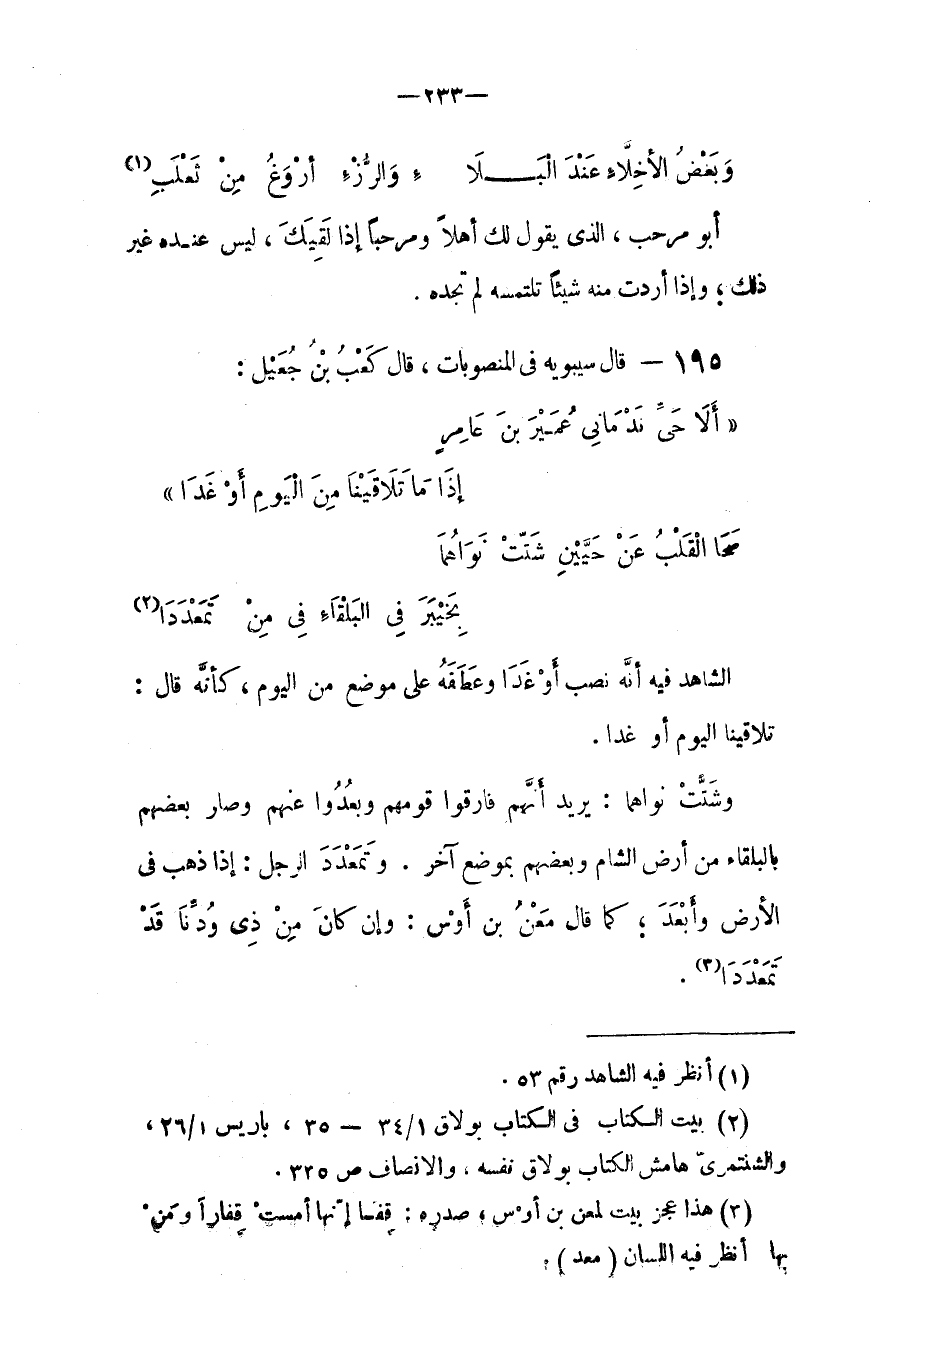 —٢٣٣—
وَبَعْضُ الأَخِلَّاءِ عَنْدَ الْبَـــلَا ءِ وَالرُّزْءِ أَرْوَغُ مِنْ ثَعْلَبِ(١)
أبو مرحب ، الذى يقول لك أهلاً ومرحباً إذا لَقِيَكَ ، ليس عنـده غير
ذلك ؛ وإذا أردت منه شيئاً تلتمسه لم تجده .
١٩٥ — قال سيبويه فى المنصوبات ، قال كَعْبُ بْنُ جُعَيْل :
« أَلَا حَىِّ نَدْمَانِى عُمَيْرَ بنَ عَامِرٍ
إذَا مَا تَلَاقَيْنَا مِنَ الْيَومِ أَوْ غَدَا »
صَحَا الْقَلْبُ عَنْ حَيَّيْنِ شَتَّتْ نَوَاهُمَا
بِخَيْبَرَ فِى البَلْقَاءِ فِى مِنْ تَمَعْدَدَا(٢)
الشاهد فيه أنَّه نصب أَوْ غَدَا وعَطَفَهُ على موضع من اليوم ، كأنَّه قال :
تلاقينا اليوم أو غدا .
وشَتَّتْ نواهما : يريد أَنَّهم فارقوا قومهم وبعُدُوا عنهم وصار بعضهم
بالبلقاء من أرض الشام وبعضهم بموضع آخر . وتَمَعْدَدَ الرجل : إذا ذهب فى
الأرض وأَبْعَدَ ؛ كما قال مَعْنُ بن أَوْس : وإن كانَ مِنْ ذِى وُدِّنَا قَدْ
تَمَعْدَدَا(٣) .
(١) أنظر فيه الشاهد رقم ٥٣ .
(٢) بيت الـكتاب فى الـكتاب بولاق ٣٤/١ — ٣٥ ، باريس ٢٦/١ ،
والشنتمرىّ هامش الكتاب بولاق نفسه ، والانصاف ص ٣٢٥ .
(٣) هذا عجز بيت لمعن بن أوْس ، صدره : قِفـَا إنّها أمستْ قِفاراً ومَنْ
بِها أنظر فيه اللسان ( معد ) .